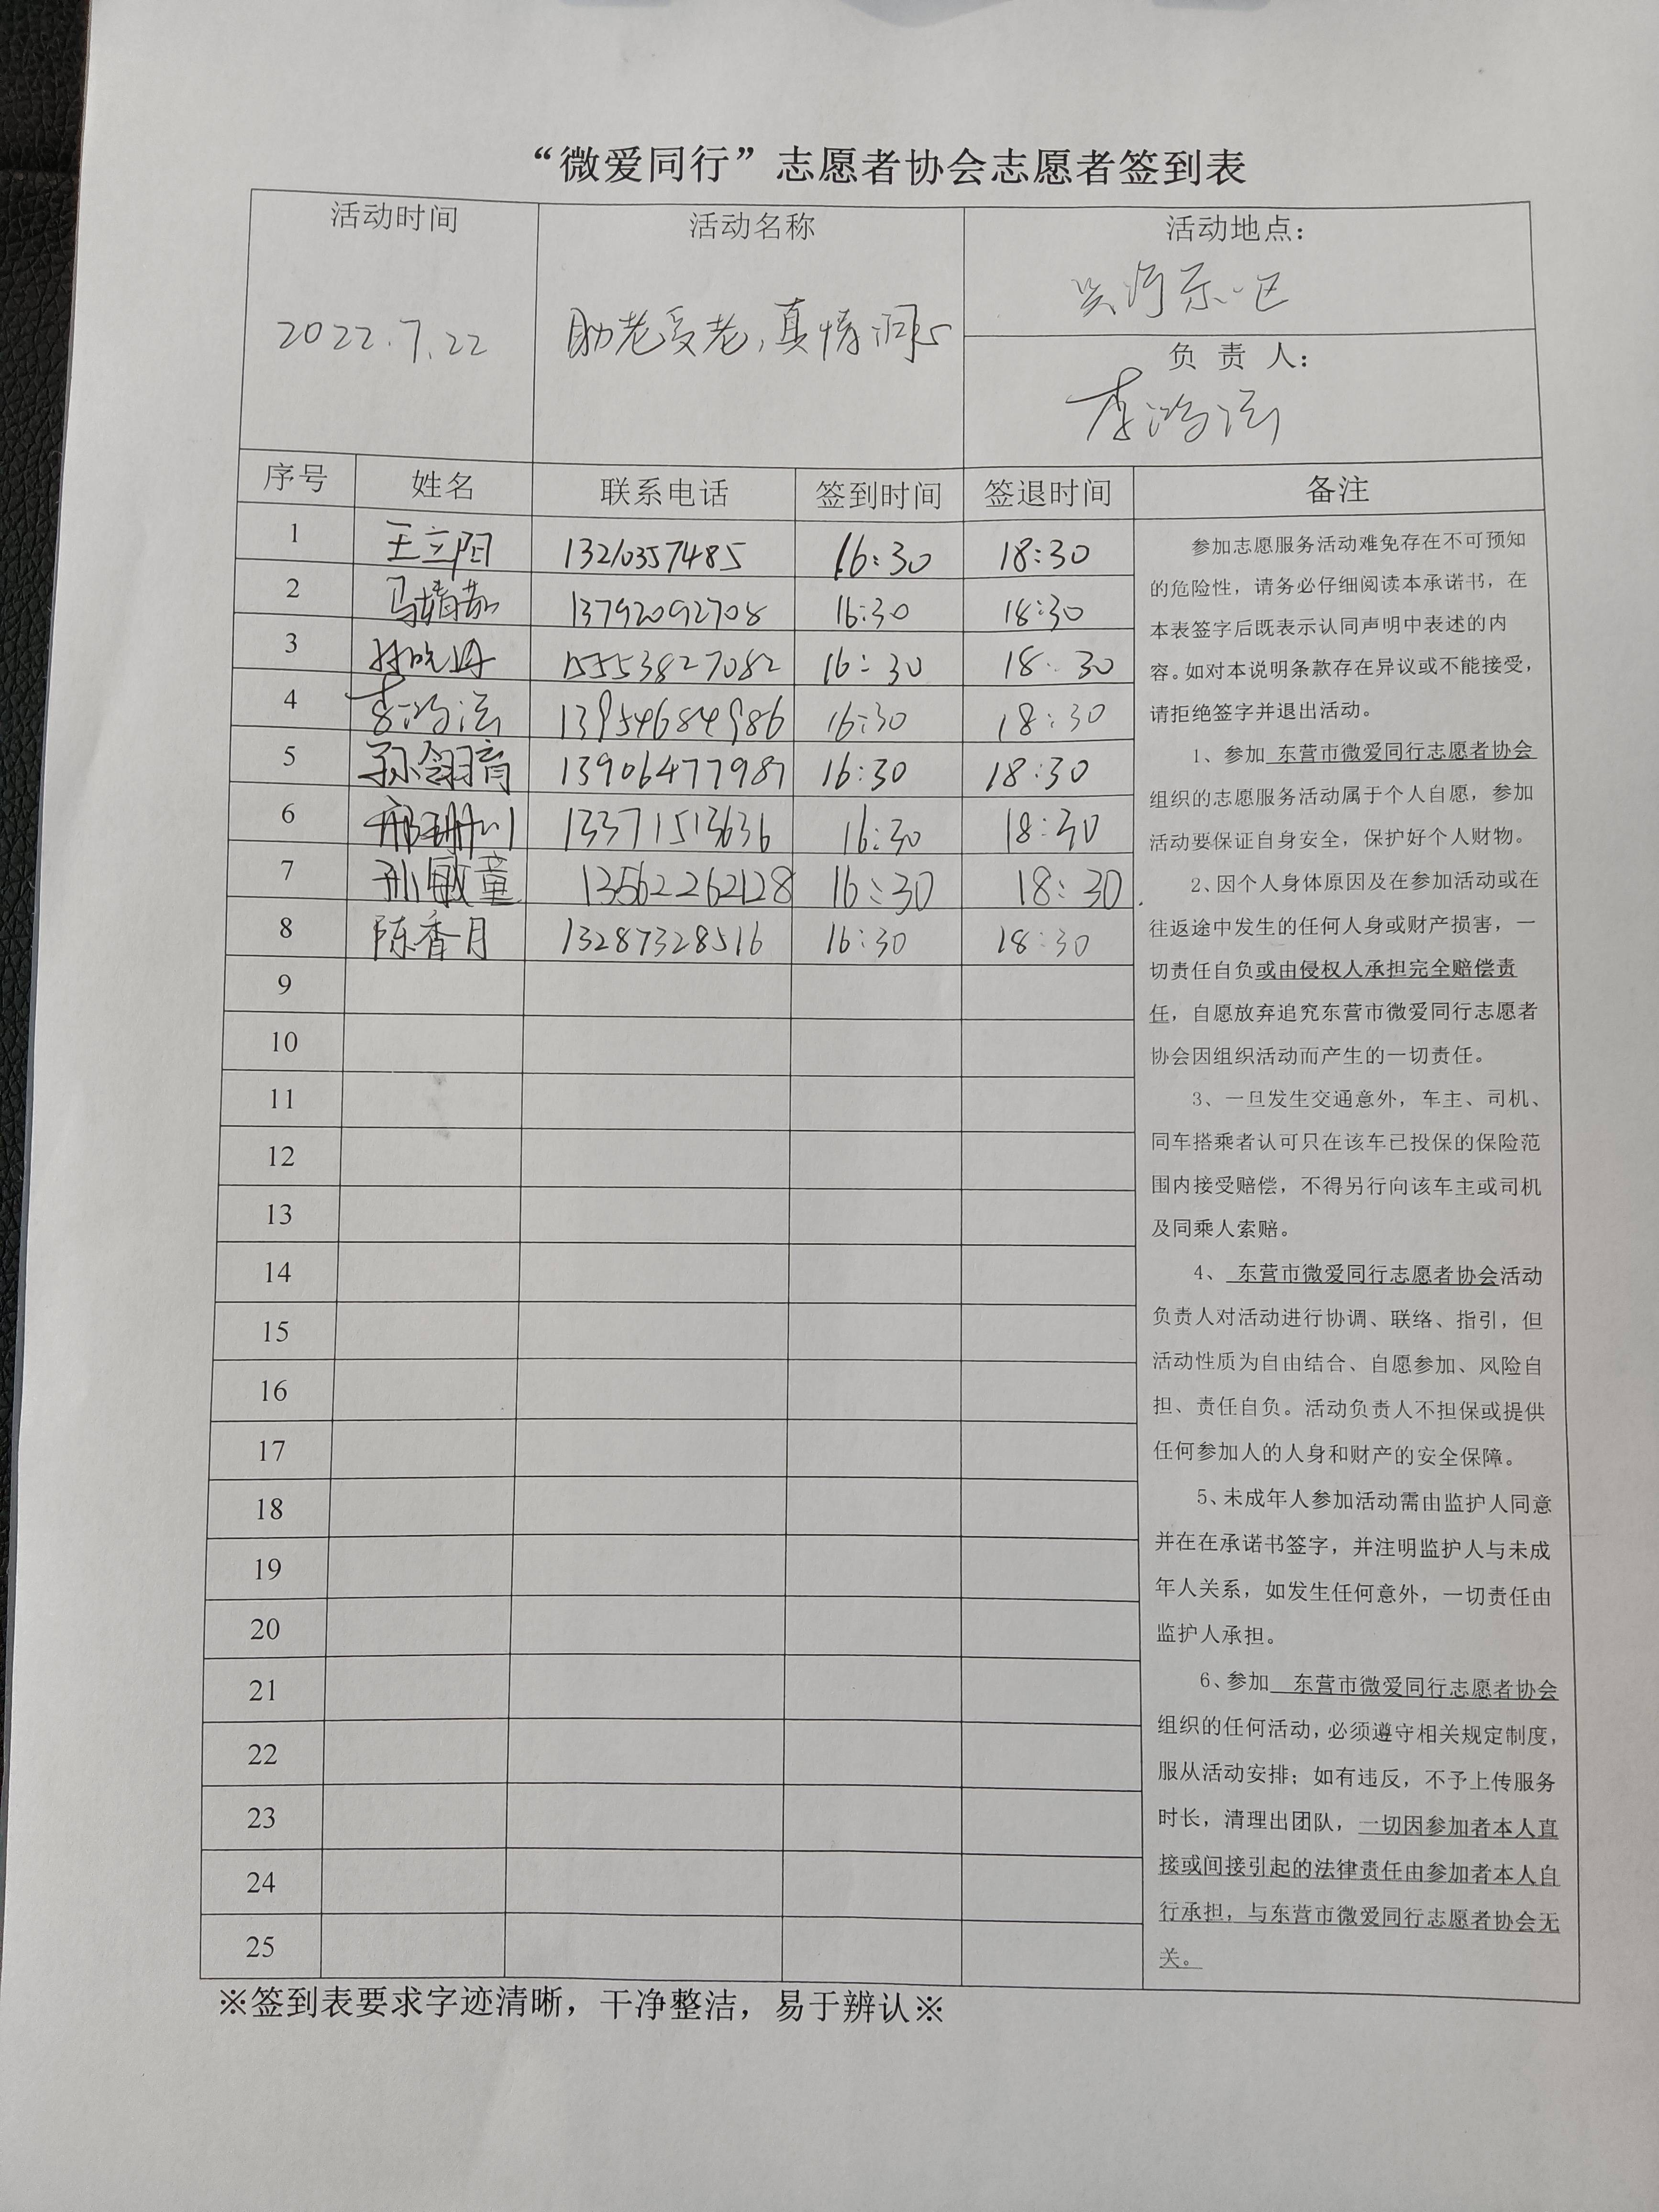 “微爱同行”志愿者协会志愿者签到表
活动时间
活动名称
活动地点：
2022.7.22
助老爱老，真情
负责人：
李鸿运
序号 姓名 联系电话 签到时间 签退时间 备注
1 王立阳 13210357485 16:30 18:30
2 马婧茹 13792092708 16:30 18:30
3 15553827082 16:30 18:30
4 李鸿运 13954684986 16:30 18:30
5 孙翎育 13906477987 16:30 18:30
6 13371513636 16:30 18:30
7 孙敏童 13562262128 16:30 18:30
8 陈香月 13287328516 16:30 18:30
9
10
11
12
13
14
15
16
17
18
19
20
21
22
23
24
25
参加志愿服务活动难免存在不可预知
的危险性，请务必仔细阅读本承诺书，在
本表签字后既表示认同声明中表述的内
容。如对本说明条款存在异议或不能接受，
请拒绝签字并退出活动。
1、参加 东营市微爱同行志愿者协会
组织的志愿服务活动属于个人自愿，参加
活动要保证自身安全，保护好个人财物。
2、因个人身体原因及在参加活动或在
往返途中发生的任何人身或财产损害，一
切责任自负或由侵权人承担完全赔偿责
任，自愿放弃追究东营市微爱同行志愿者
协会因组织活动而产生的一切责任。
3、一旦发生交通意外，车主、司机、
同车搭乘者认可只在该车已投保的保险范
围内接受赔偿，不得另行向该车主或司机
及同乘人索赔。
4、 东营市微爱同行志愿者协会活动
负责人对活动进行协调、联络、指引，但
活动性质为自由结合、自愿参加、风险自
担、责任自负。活动负责人不担保或提供
任何参加人的人身和财产的安全保障。
5、未成年人参加活动需由监护人同意
并在在承诺书签字，并注明监护人与未成
年人关系，如发生任何意外，一切责任由
监护人承担。
6、参加 东营市微爱同行志愿者协会
组织的任何活动，必须遵守相关规定制度，
服从活动安排；如有违反，不予上传服务
时长，清理出团队，一切因参加者本人直
接或间接引起的法律责任由参加者本人自
行承担，与东营市微爱同行志愿者协会无
关。
※签到表要求字迹清晰，干净整洁，易于辨认※